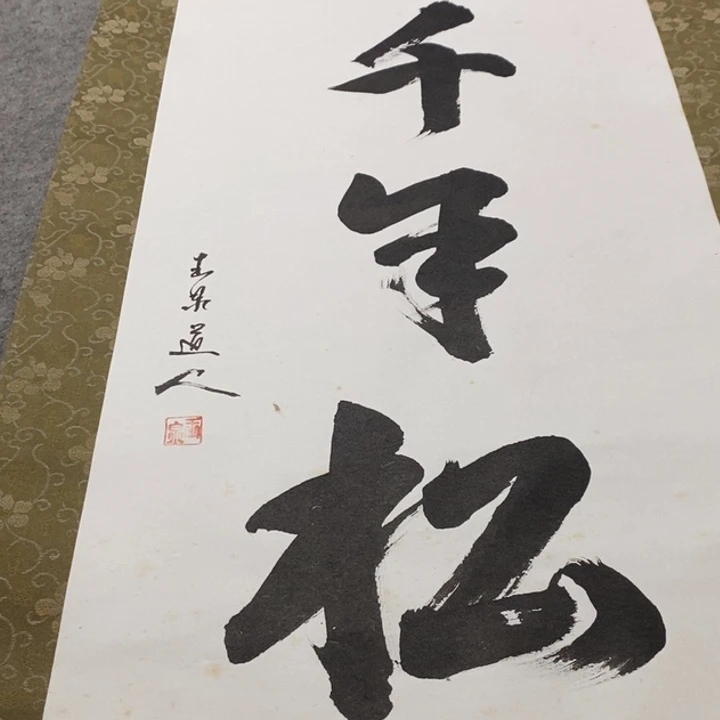 千年松
道人